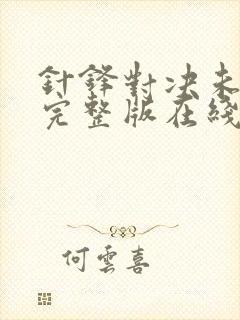 針鋒對決未
完整版在綫
何雲喜